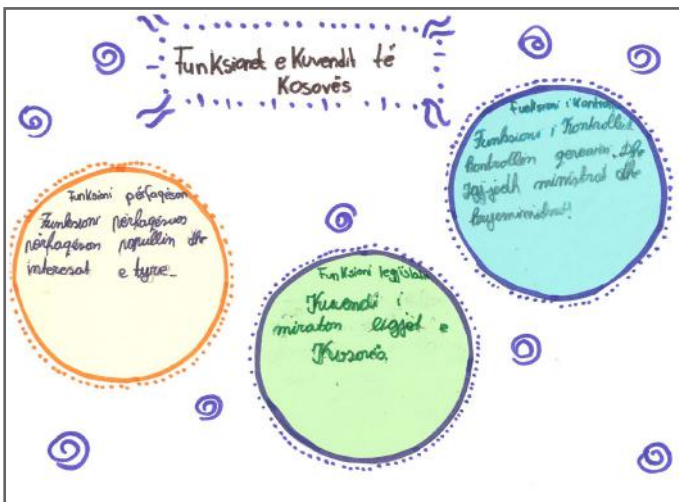 Funksionet e Kuvendit të
Kosovës
Funksioni përfaqëson
Funksioni përfaqësues
përfaqëson popullin dhe
interesat e tyre.
Funksioni legjislativ
Kuvendi i
miraton ligjet e
Kosovës.
Funksioni i Kontrollit
Funksioni i Kontrollit
kontrollon qeverinë. Dhe
zgjjedh ministrat dhe
kryeministrat!